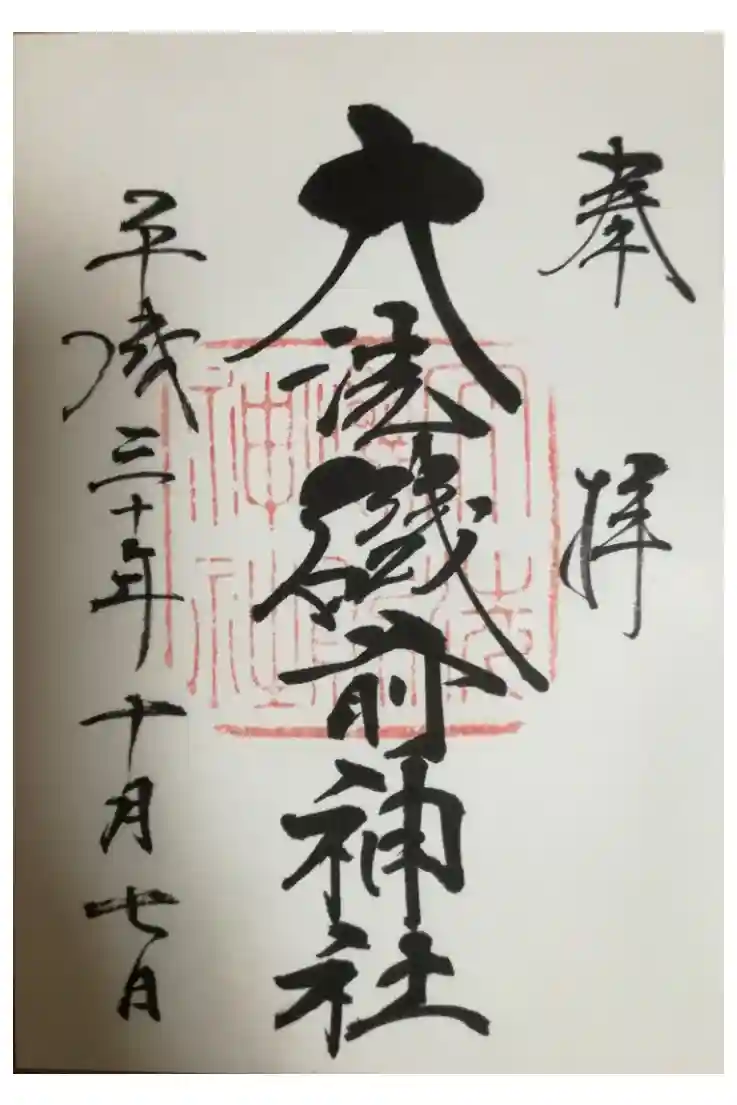 奉拝
大洗磯前神社
大洗
磯前
神社
平成三十年十月七日